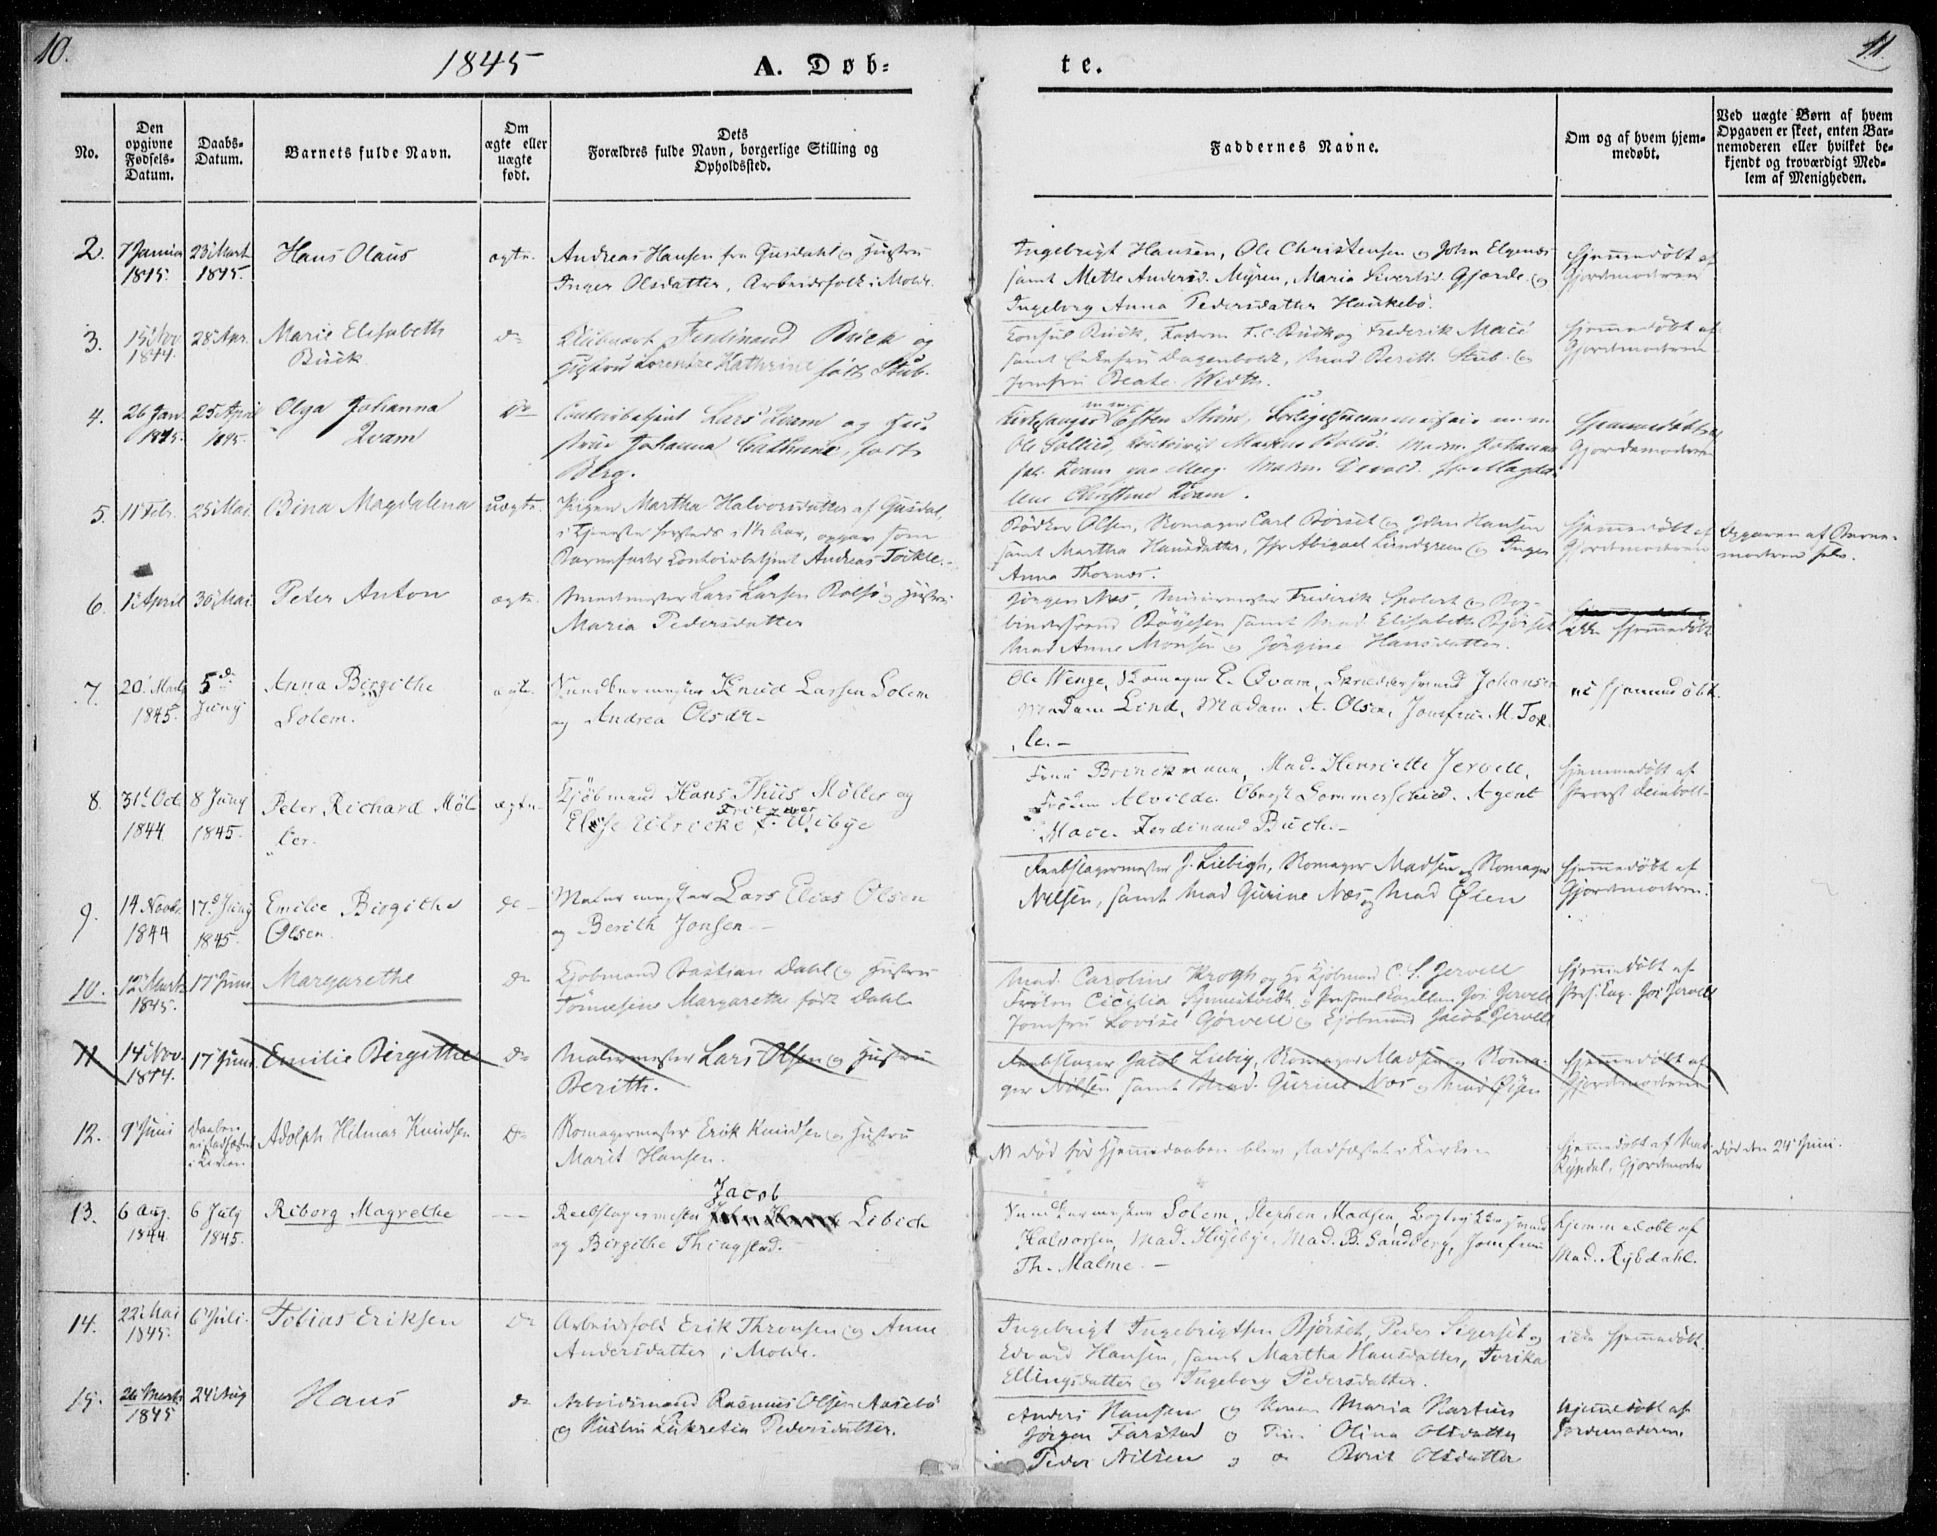 10.
1845
A. Døb-
te.
11.
No.
Den opgivne Fødsels-Datum.
Daabs-Datum.
Barnets fulde Navn.
Om ægte eller uægte født.
Dets
Forældres fulde Navn, borgerlige Stilling og
Opholdssted.
Faddernes Navne.
Om og af hvem hjem-
medøbt.
Ved uægte Børn af hvem
Opgaven er skeet, enten Bar-
nemoderen eller hvilket be-
kjendt og troværdigt Med-
lem af Menigheden.
2. 7 Januar 1845. 23 Marts 1845. Hans Olaus ægte.
Andreas Hansen fra Gusdahl og Hustru
Inger Olsdatter, Arbeidsfolk i Molde.
Ingebrigt Hansen, Ole Christensen og John Elgenæs
samt Mette Andersd. Myren, Maria Sivertsd. Gjørde og
Ingeborg Anna Pedersdatter Haukebø.
Hjemmedøbt af
Gjordemoderen
3. 15 Nov 1844. 28 Apr. Marie Elisabeth
Buck do
Ferdinand Buck og
Hustru Lorentze Kathrine født Stub.
Consul Buck, F.C. Buck og Frederik Mace
samt Dagenbolt, Mad Berith Stub og
Jomfru Beate Width.
Hjemmedøbt af
Gjordemoderen
4. 26 Jan. 1845. 25 April 1845. Olga Johanna
Qvam do
Contoirbetjent Lars Qvam og Hu-
strue Johanna Cathrine, født
Berg.
Kirkesanger Østen Strøm,
Ole Sollied, Madm. Johanna
Qvam Madm Devold. Magda-
lene Christine Qvam.
Hjemmedøbt af
Gjordemoderen
5. 11 Febr. 25 Mai. Bina Magdalena uægte.
Pigen Martha Halvorsdatter af Gusdal,
i Tjeneste hersteds i 1½ Aar, opgav som
Barnefader Contoirbetjent Andreas Torkle.
Bødker Olsen, Skomager Carl Børset og John Hansen
samt Martha Hansdatter, Jfr Abigael Lundgreen og Inger
Anna Thornæs.
Hjemmedøbt af
Gjordemoderen
Opgaven af Barne-
moderen selv.
6. 1 April 30 Mai. Peter Anton ægte.
Lars Larsen Rolsø og Hustru
Maria Pedersdatter
Jørgen Næs, Frederik Spolert og Bog-
bindersvend Bøyesen samt Mad Elisabeth Bjørset
Mad Anne Monsen og Jørgine Hansdatter.
ikke hjemmedøbt
7. 20 Marts 1845. 5de Juny Anna Birgithe
Solem. ægte.
Sundbermester Knud Larsen Solem
og Andrea Olsdr-
Ole Wenge, Skomager E. Qvam, Skræddersvend Johansen
Madam Lind, Madam A. Olsen, Jomfrue M. Tor-
le.-
ei hjemmedøbt.
8. 31 Oct. 1844 8 Juny 1845. Peter Richard Møl-
ler. ægte
Kjøbmand Hans Thiis Møller og
Elise Ulricke Fritzner f. Wibye
Frue Brinckmann, Mad. Henriette Jervell,
Frøken Alvilde. Oberst Sommerschild. Agent
Mace. Ferdinand Buch.-
Hjemmedøbt af
Provst Deinboll-
9. 14 Novbr 1844 17d Juny 1845. Emilie Birgithe
Olsen. do
Malermester Lars Elias Olsen
og Berith Jonsen-
Reebslagermester J. Liebigh, Skomager Madsen og Skomager
Nilsen, samt Mad Gurine Næs og Mad Øien
Hjemmedøbt af
Gjordmoderen.
10. 12 Marts 1845. 17 Juni Margarethe do
Kjøbmand Bastian Dahl og Hustru
Tønnesine Margarethe født Dahl
Mad. Caroline Krogh og Hr Kjøbmand C. S. Jervell
Frøken Cicilia og Personel Capellan Joi. Jervell
Jomfru Lovise Gørvell og Kjøbmand Jacob Jervell
Hjemmedøbt af
Pers. Cap. Joi Jervell
11 14 Nov. 1844. 17 Juni Emilie Birgithe do
Malermester Lars Olsen og Hustru
Berith.
Reebslager Jacob Liebig, Skomager Madsen og Skoma-
ger Nilsen samt Mad. Gurine Næs og Mad Øyen
Hjemmedøbt af
Gjordmoderen
12. 9 Juni Daaben ei stadfæstet i Kirken Adolph Hilmar Knudsen do
Skomagermester Erik Knudsen og Hustru
Marit Hansen.
NB død før Hjemmedaaben blev stadfæstet i Kirken
Hjemmedøbt af Mad
Rypdal, Gjordmoder
død den 24 Juni.
13. 6 Aug. 1844 6 July 1845. Riborg Magrethe
Jacob
Reebslagermester Libich
og Birgithe Thingstad.
Sundbermester Solem, Stephen Madsen, Bogtrykkersvend
Halvorsen, Mad. Høgebye, Mad. B. Sandberg, Jomfrue
Th. Malme.-
hjemmedøbt af
Mad. Rybdahl.
14. 22 Mai 1845. 6 Juli. Tobias Eriksen do
Arbeidsfolk Erik Thronsen og Anne
Andersdatter i Molde.
Ingebrigt Ingebrigtsen Bjørset, Peder Sigerset og
Edvard Hansen, samt Martha Hansdatter, Torika
Ellingsdatter og Ingeborg Pedersdatter.
ikke hjemmedøbt.
15. 26 Marts 1845 24 Aug Hans do
Arbeidsmand Rasmus Olsen Aasebø
og Hustru Lukretia Pedersdatter.
Anders Hansen og Kone Maria Martins
Jørgen Farstad og Olina Olsdatter
Peder Nilsen og Berit Olsdatter
hjemmedøbt af
Jordemoderen.